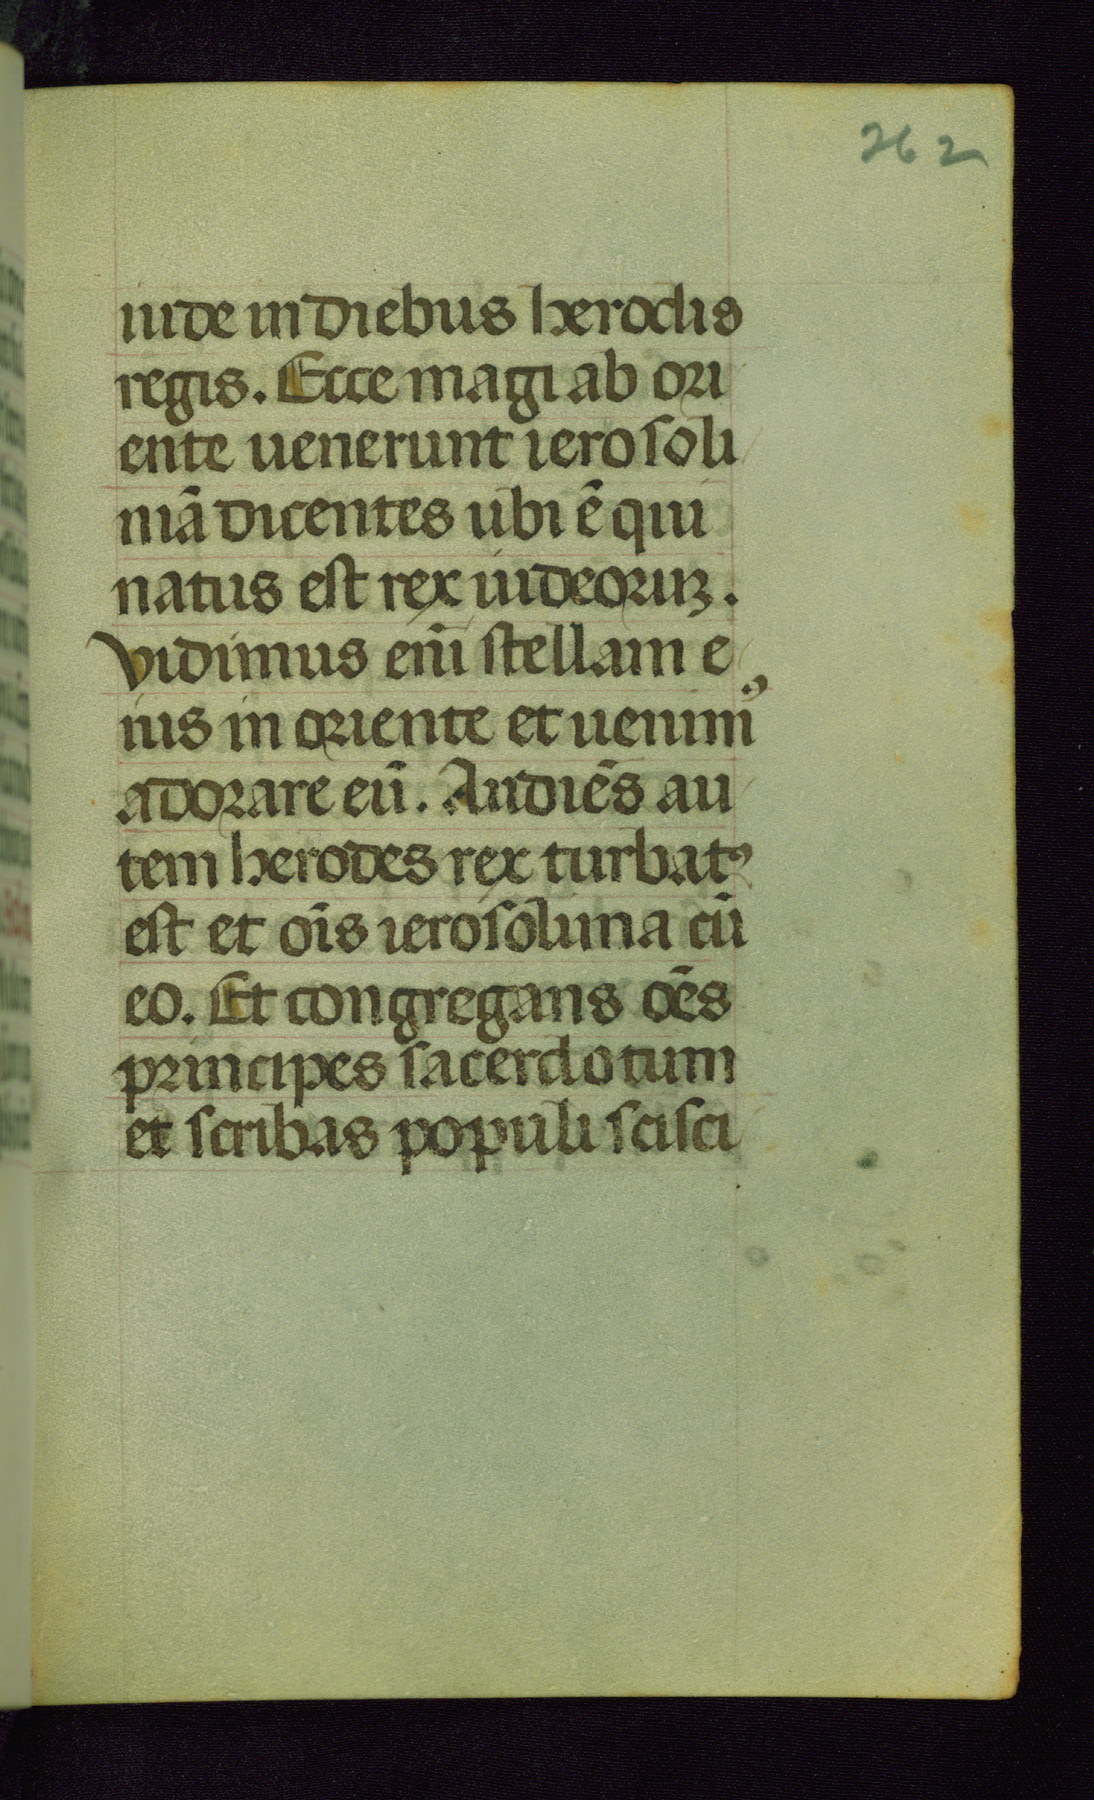 262
iude in diebus herodis
regis. Ecce magi ab ori
ente uenerunt ierosoli
mā dicentes ubi ē qui
natus est rex iudeoruꝫ.
Vidimus eni̅ stellam e
ius in oriente et uenimꝰ
adorare eū. Audiēs au
tem herodes rex turbatꝰ
est et oi̅s ierosolima cū
eo. Et congregans oēs
principes sacerdotum
et scribas populi scisci